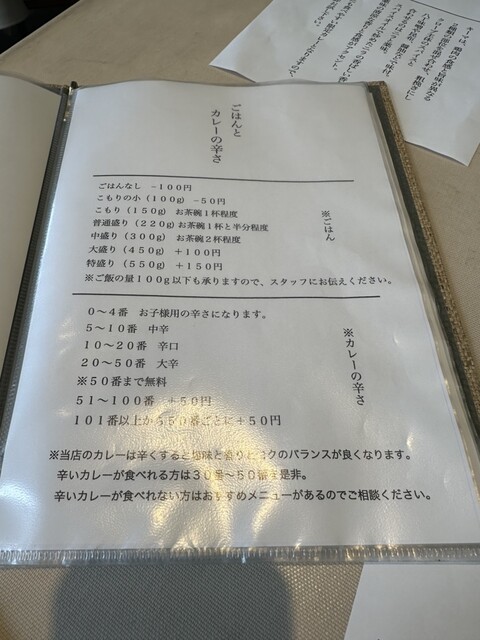 ごはんと
カレーの辛さ
※ごはん
ごはんなし －100円
こもりの小（100g）－50円
こもり（150g）お茶碗1杯程度
普通盛り（220g）お茶碗1杯と半分程度
中盛り（300g）お茶碗2杯程度
大盛り（450g）＋100円
特盛り（550g）＋150円
※ご飯の量100g以下も承りますので、スタッフにお伝えください。
※カレーの辛さ
0～4番 お子様用の辛さになります。
5～10番 中辛
10～20番 辛口
20～50番 大辛
※50番まで無料
51～100番 ＋50円
101番以上から50番ごとに＋50円
※当店のカレーは辛くすると旨味と香りとコクのバランスが良くなります。
辛いカレーが食べれる方は30番～50番を是非。
辛いカレーが食べれない方はおすすめメニューがあるのでご相談ください。